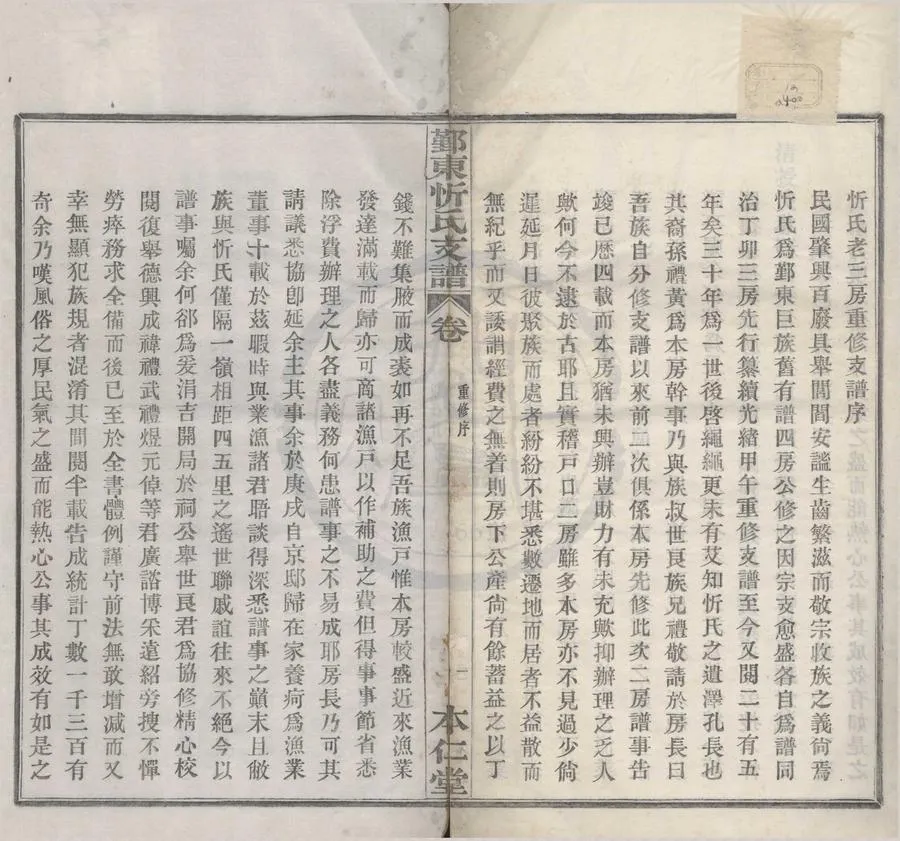 忻氏老三房重修支譜序
民國肇興百廢具舉閭閻安謐生齒繁滋而敬宗收族之義尙焉
忻氏爲鄞東巨族舊有譜四房公修之因宗支愈盛各自爲譜同
治丁卯三房先行纂續光緒甲午重修支譜至今又閱二十有五
年矣三十年爲一世後啓繩繩更未有艾知忻氏之遺澤孔長也
其裔孫禮黃爲本房幹事乃與族叔世良族兄禮敬請於房長曰
吾族自分修支譜以來前二次俱係本房先修此次二房譜事告
竣已歷四載而本房猶未興辦豈財力有未充歟抑辦理之乏人
歟何今不逮於古耶且實稽戶口二房雖多本房亦不見過少倘
遲延月日彼聚族而處者紛紛不堪悉數遷地而居者不益散而
無紀乎而又諉謂經費之無着則房下公產尙有餘蓄益之以丁
鄞東忻氏支譜
卷
重修序
一
本仁堂
錢不難集腋而成裘如再不足吾族漁戶惟本房較盛近來漁業
發達滿載而歸亦可商諸漁戶以作補助之費但得事事節省悉
除浮費辦理之人各盡義務何患譜事之不易成耶房長乃可其
請議悉協卽延余主其事余於庚戌自京邸歸在家養疴爲漁業
董事十載於茲暇時與業漁諸君晤談得深悉譜事之巔末且敝
族與忻氏僅隔一嶺相距四五里之遙世聯戚誼往來不絕今以
譜事囑余何郤爲爰涓吉開局於祠公舉世良君爲協修精心校
閱復舉德興成禕禮武禮煜元倬等君廣諮博采遠紹旁搜不憚
勞瘁務求全備而後已至於全書體例謹守前法無敢增減而又
幸無顯犯族規者混淆其間閱半載告成統計丁數一千三百有
奇余乃嘆風俗之厚民氣之盛而能熱心公事其成效有如是之